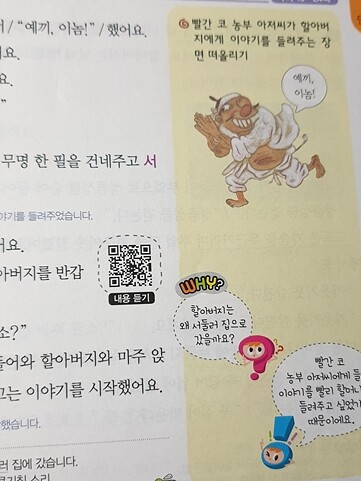 / "예끼, 이놈!" / 했어요.
요.
요.
"
무명 한 필을 건네주고 서
야기를 들려주었습니다.
어요.
아버지를 반갑
내용 듣기
소?"
들어와 할아버지와 마주 앉
고는 이야기를 시작했어요.
했습니다.
러 집에 갔습니다.
빨간 코 농부 아저씨가 할아버
지에게 이야기를 들려주는 장
면 떠올리기
예끼,
이놈!
WHY?
할아버지는
왜 서둘러 집으로
갔을까요?
빨간 코
농부 아저씨에게 들
이야기를 빨리 할머니
들려주고 싶었기
때문이에요.